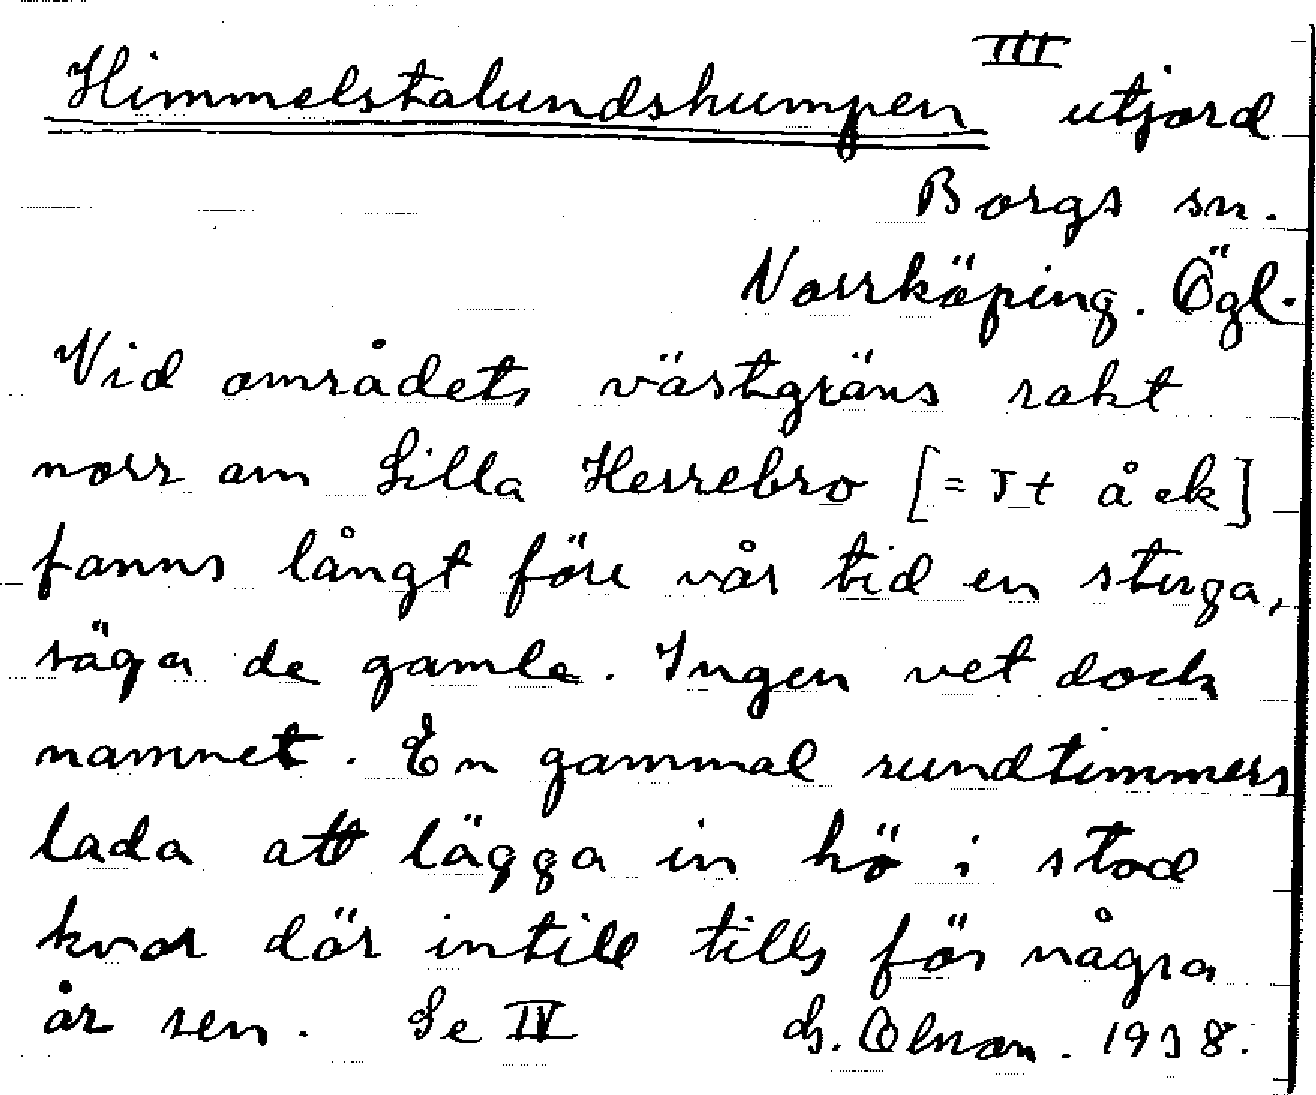 III
Himmelstalundshumpen utjord
Borgs sn.
Norrköping. Ögl.
Vid områdets västgräns rakt
norr om Lilla Herrebro [= st å ek]
fanns långt före vår tid en stuga,
säga de gamla. Ingen vet dock
namnet. En gammal rundtimmers
lada att lägga in hö i stod
kvar där intill tills för några
år sen. Se IV Olsson. 1938.